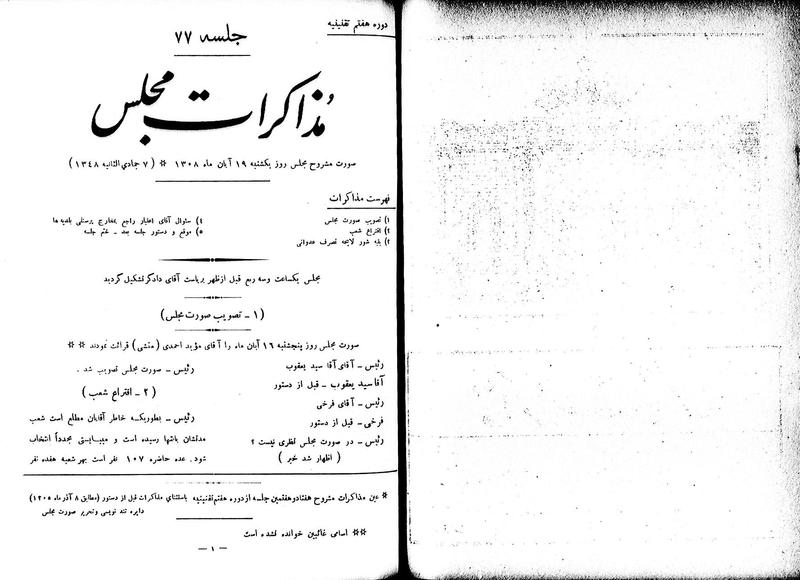 دوره هفتم تقنینیه
جلسه ۷۷
مذاکرات مجلس
صورت مشروح مجلس روز یکشنبه ۱۹ آبان ماه ۱۳۰۸ * (۷ جمادی الثانیه ۱۳۴۸)
فهرست مذاکرات
۱) تصویب صورت مجلس
۲) اقتراع شعب
۳) بقیه شور لایحه تصرف عدوانی
۴) سئوال آقای اعتبار راجع بمخارج پرسنلی بلدیه ها
۵) موقع و دستور جلسه بعد - ختم جلسه
مجلس یکساعت وسه ربع قبل از ظهر بریاست آقای دادگر تشکیل گردید
(۱ - تصویب صورت مجلس)
صورت مجلس روز پنجشنبه ۱۶ آبان ماه را آقای مؤید احمدی (منشی) قرائت نمودند **
رئیس - آقای آقا سید یعقوب
آقا سید یعقوب - قبل از دستور
رئیس - آقای فرخی
فرخی - قبل از دستور
رئیس - در صورت مجلس نظری نیست ؟
( اظهار شد خیر )
رئیس - صورت مجلس تصویب شد .
( ۲ - اقتراع شعب )
رئیس - بطوریکه خاطر آقایان مطلع است شعب
مدتشان بانتها رسیده است و میبایستی مجدداً انتخاب
شود. عده حاضره ۱۰۷ نفر است بهر شعبه هفده نفر
* عین مذاکرات مشروح هفتاد و هفتمین جلسه از دوره هفتم تقنینیه باستثنای مذاکرات قبل از دستور (مطابق ۸ آذر ماه ۱۳۰۵)
دایره تند نویسی و تحریر صورت مجلس
** اسامی غائبین خوانده نشده است
— ۱ —